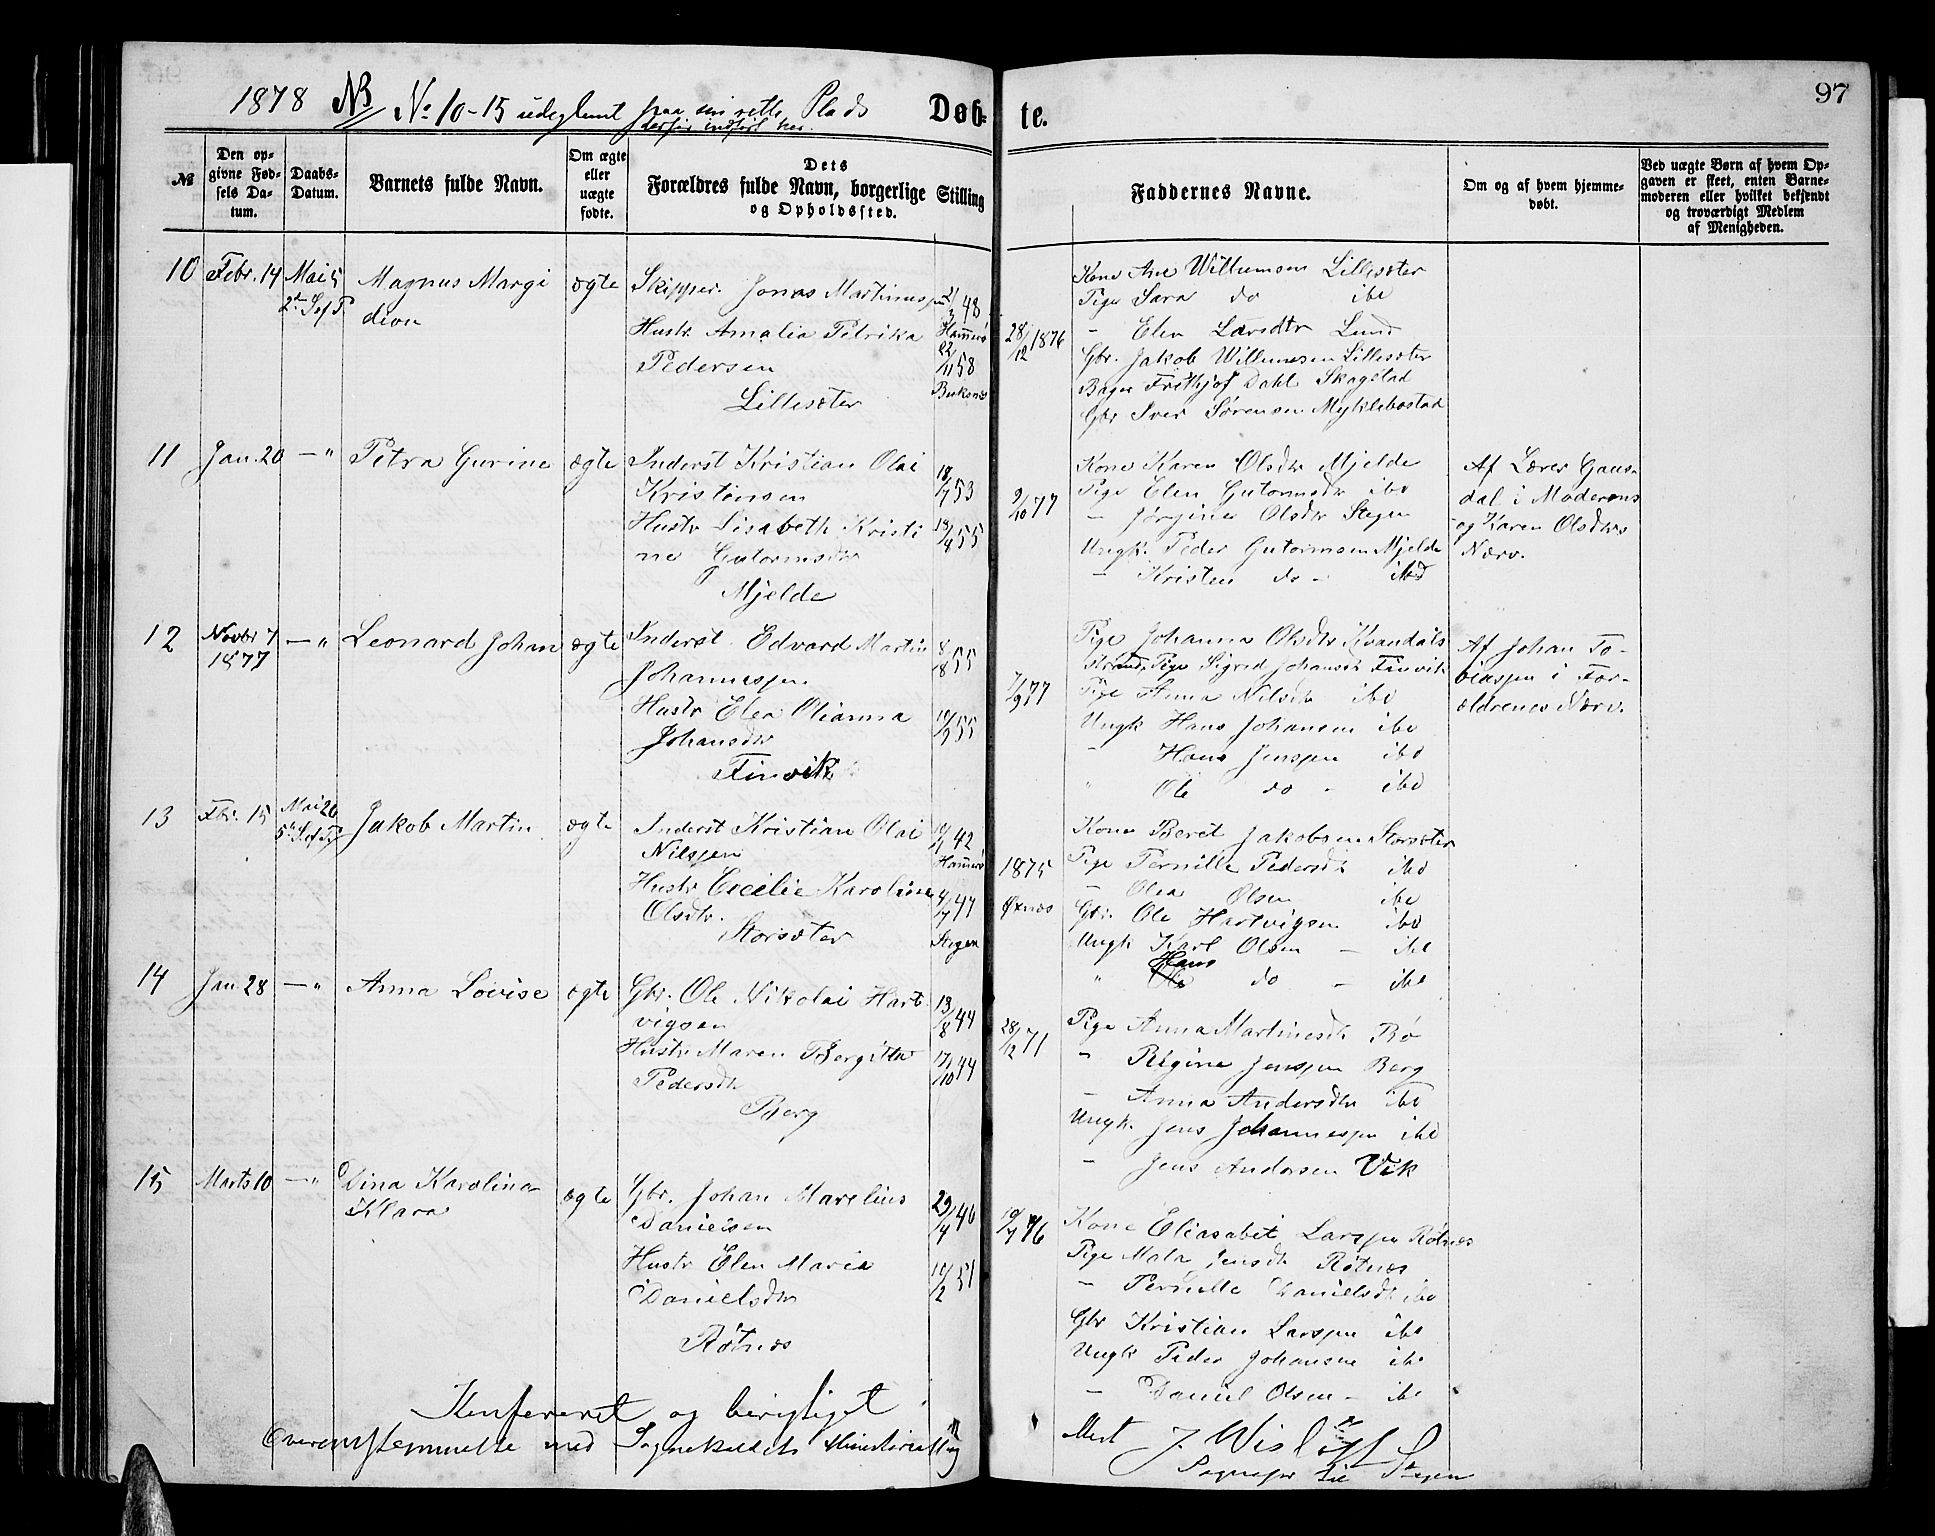 97
1878 NB No 10-15 udeglemt paa sin rette Plads
derfor indført her.
Døb- te.
№
Den opgivne Fødsels Datum.
Daabs-Datum.
Barnets fulde Navn.
Om ægte eller uægte fødte.
Dets Forældres fulde Navn, borgerlige Stilling og Opholdssted.
Faddernes Navne.
Om og af hvem hjemmedøbt.
Ved uægte Børn af hvem Opgaven er skeet, enten Barnemoderen eller hvilket bekjendt og troværdigt Medlem af Menigheden.
10 Febr. 14 Mai 5 Magnus Margi ægte Skipper. Jonas Martinussen 2/3 48
dion
Hustr Amalia Petrika Hamerø
Pedersen 22/11 58
Lillesæter Buksnes
28/12 1876
Kone Ane Willumsen Lillesæter
Pige Sara do ibd
- Elen Larsdtr Lund
Gbr. Jakob Willumsen Lillesæter
Bager Frithjof Dahl Skagstad
Gbr Iver Sørensen Myklebostad
11 Jan. 20 -"- Petra Gurine ægte Inderst Kristian Olai 18/7 53
Kristensen
Hustr Lisabeth Kristi 18/8 55
ne Gutormsdtr
Mjelde
9/10 77
Kone Karen Olsdtr Mjelde
Pige Elen Gutormsdtr ibd
- Jørgine Olsdtr Stegen
Ungk. Peder Gutormsen Mjelde
- Kristen do - ibd
Af Lærer Gaus-
dal i Moderens
og Karen Olsdtrs
Nærv.
12 Novbr 7 -"- Leonard Johan ægte Inderst Edvard Martin 8/8 55
1877
Johannesen
Hustr Elea Olianna 10/ 55
Johansdtr
Finvik
7/9 77
Pige Johanna Olsdtr Kvandals
strand, Pige Sigrid Johansdtr Finvik
Pige Anna Nilsdtr ibd
Ungk Hans Johansen ibd
Hans Jenssen ibd
" Ole do - ibd
Af Johan To-
biassen i For-
ældrenes Nærv.
13 Fbr. 15 Mai 26 Jakob Martin ægte Inderst Kristian Olai 42
Nilssen Hamerø
Hustr Cecilie Karoline 4/7 47
Olsdtr.
Storsæter Stegen
1875
Øxnæs
Kone Beret Jakobsen Storsæter
Pige Pernille Pedersdtr ibd
- Olea Olsen ibd
Gbr. Ole Hartvigsen ibd
Ungk Karl Olsen - ibd
" Hans do - ibd
14 Jan 28 -"- Anna Lovise ægte Gbr. Ole Nikolai Hart 13/8 44
vigsen
Hustr Maren Bergitta 17/10 44
Pedersdtr
Berg
28/12 71
Pige Anna Martinesdtr Bø
" Regine Jenssen Berg
- Anna Andersdtr ibd
Ungk. Jens Johannesen ibd
- Jens Andersen Vik
15 Marts 10 -"- Dina Karolina ægte Gbr. Johan Marelius 29/4 46
Klara
Danielsen
Hustr Elen Maria 10/2 51
Danielsdtr
Røtnæs
10/7 76
Kone Eliasabet Larssen Røtnæs
Pige Mala Jensdtr Røtnæs
- Pernelle Danielsdtr ibd
Gbr Kristian Larssen ibd
Ungk Peder Johansen ibd
- Daniel Olsen - ibd
Konfereret og berigtiget
Overenstemmelse med Sognekaldets Ministerialbog
Mest J. Wisløff
Sognepr til Stegen